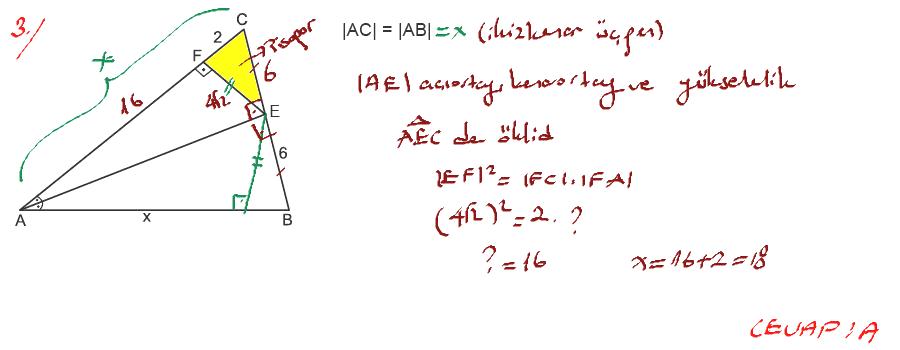 3./
|AC| = |AB| = x (ikizkenar üçgen)
|AE| açıortay, kenarortay ve yükseklik
AEC de öklid
|EF|² = |FC|.|FA|
(4√2)² = 2. ?
? = 16 x = 16+2 = 18
CEVAP: A
C
2
F
x
16
4√2
Pisagor
6
E
6
A
x
B